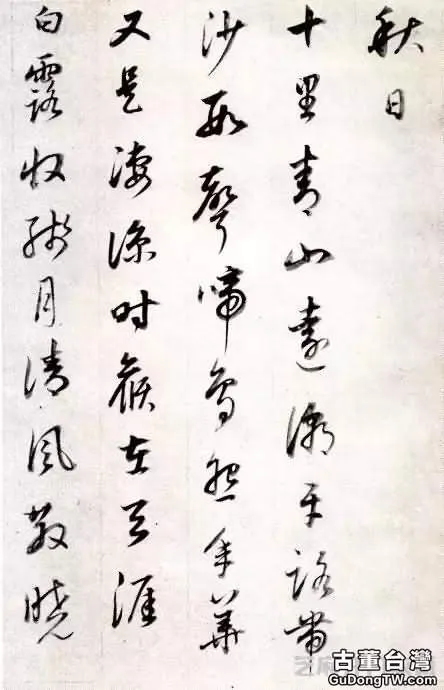 秋日
十里青山遠潮平路帶
沙數聲啼鳥怨年華
又是淒涼時候在天涯
白露收殘月清風散曉
古董台灣
GuDongTW.com